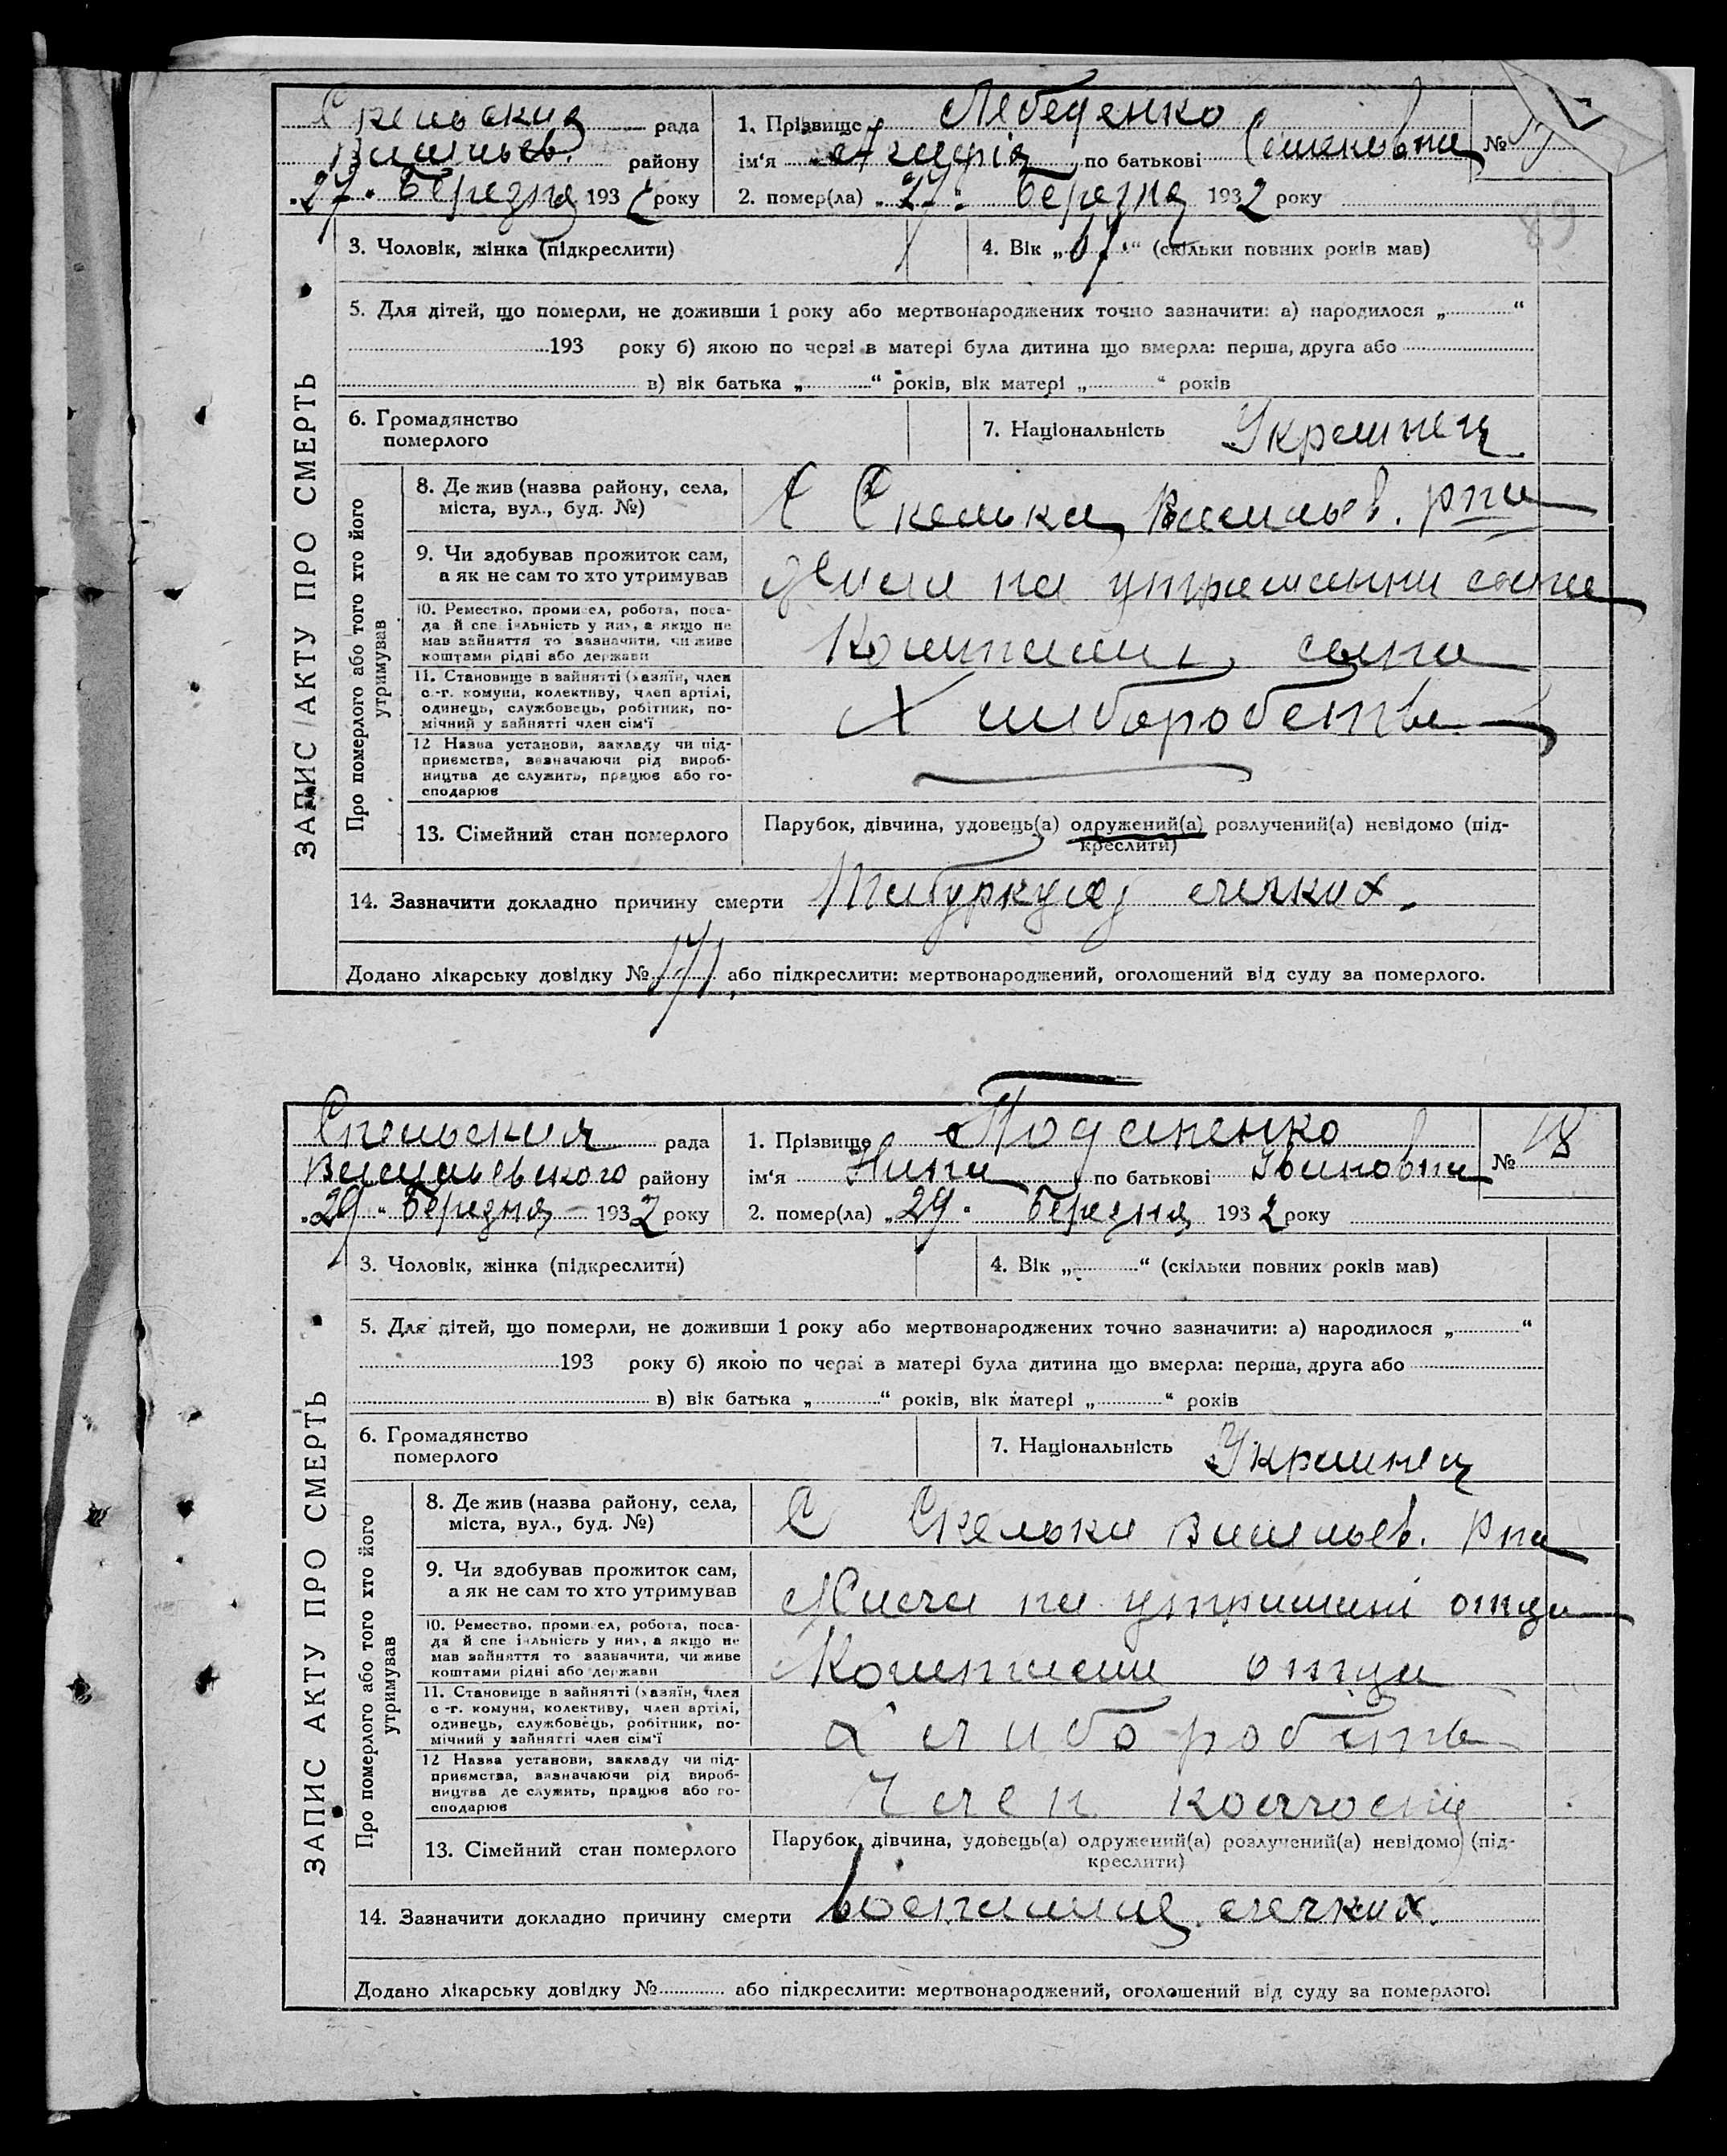 Скельская рада
Васильев. району
„27“ березня 1932 року
1. Прізвище Лебеденко
ім'я по батькові Семеновна №
2. помер(ла) „27“ березня 1932 року
89
3. Чоловік, жінка (підкреслити)
4. Вік „“ (скільки повних років мав)
5. Для дітей, що померли, не доживши 1 року або мертвонароджених точно зазначити: а) народилося „“
193 року б) якою по черзі в матері була дитина що вмерла: перша, друга або
в) вік батька „“ років, вік матері „“ років
6. Громадянство
померлого
7. Національність Украинец
ЗАПИС АКТУ ПРО СМЕРТЬ
Про померлого або того хто його
утримував
8. Де жив (назва району, села,
міста, вул., буд. №)
С Скельки Васильев. рна
9. Чи здобував прожиток сам,
а як не сам то хто утримував
Жила на утриманни сина
10. Ремество, промисел, робота, поса-
да й спеціяльність у них, а якщо не
мав зайняття то зазначити, чи живе
коштами рідні або держави
Коштами сина
11. Становище в зайнятті (хазяїн, член
с.-г. комуни, колективу, член артілі,
одинець, службовець, робітник, по-
мічний у зайнятті член сім'ї
Хлиборобства
12 Назва установи, закладу чи під-
приємства, зазначаючи рід вироб-
ництва де служить, працює або го-
сподарює
13. Сімейний стан померлого
Парубок, дівчина, удовець(а) одружений(а) розлучений(а) невідомо (під-
креслити)
14. Зазначити докладно причину смерти Тибуркулоз легких.
Додано лікарську довідку № 171 або підкреслити: мертвонароджений, оголошений від суду за померлого.
Скельская рада
Васильевского району
„29“ березня 1932 року
1. Прізвище
ім'я Нина по батькові Ивановна № 18
2. помер(ла) „29“ березня 1932 року
3. Чоловік, жінка (підкреслити)
4. Вік „“ (скільки повних років мав)
5. Для дітей, що померли, не доживши 1 року або мертвонароджених точно зазначити: а) народилося „“
193 року б) якою по черзі в матері була дитина що вмерла: перша, друга або
в) вік батька „“ років, вік матері „“ років
6. Громадянство
померлого
7. Національність Украинец
ЗАПИС АКТУ ПРО СМЕРТЬ
Про померлого або того хто його
утримував
8. Де жив (назва району, села,
міста, вул., буд. №)
С Скельки Васильев. рна
9. Чи здобував прожиток сам,
а як не сам то хто утримував
Жила на утримані отца
10. Ремество, промисел, робота, поса-
да й спеціяльність у них, а якщо не
мав зайняття то зазначити, чи живе
коштами рідні або держави
Коштами отца
11. Становище в зайнятті (хазяїн, член
с-г. комуни, колективу, член артілі,
одинець, службовець, робітник, по-
мічний у зайнятті член сім'ї
хлиборобства
12 Назва установи, закладу чи під-
приємства, зазначаючи рід вироб-
ництва де служить, працює або го-
сподарює
Член колгоспу
13. Сімейний стан померлого
Парубок, дівчина, удовець(а) одружений(а) розлучений(а) невідомо (під-
креслити)
14. Зазначити докладно причину смерти Воспаление легких.
Додано лікарську довідку № або підкреслити: мертвонароджений, оголошений від суду за померлого.